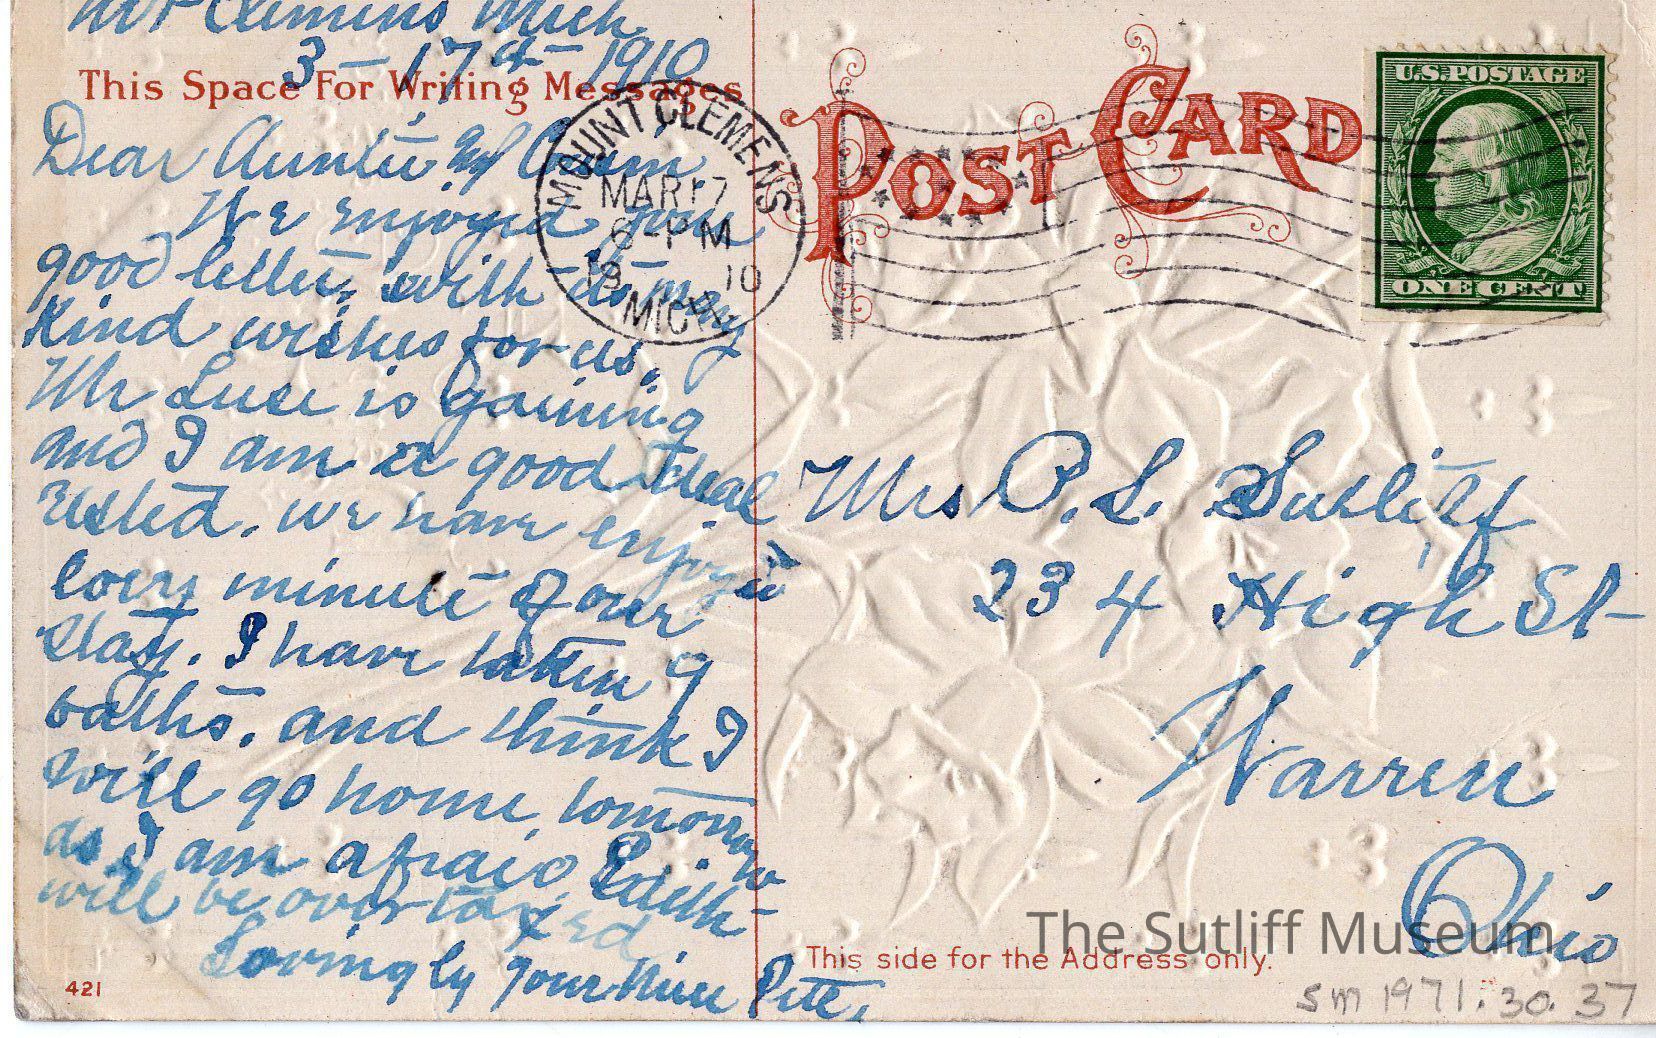 Mt Clemens Mich
3-17th-1910
This Space For Writing Messages
Dear Auntie
We enjoyed your
good letter, with its many
kind wishes for us.
Mr Luce is gaining
and I am a good deal
rested. we have enjoyed
every minute of our
stay. I have taken 9
baths. and think I
will go home tomorrow
as I am afraid Edith
will be over taxed
Lovingly your Niece Pete,
421
MOUNT CLEMENS
MAR 17
6-PM
1910
MICH
POST CARD
U.S. POSTAGE
ONE CENT
Mrs P. L. Sutliff
234 High St
Warren
Ohio
This side for the Address only.
The Sutliff Museum
SM 1971.30.37